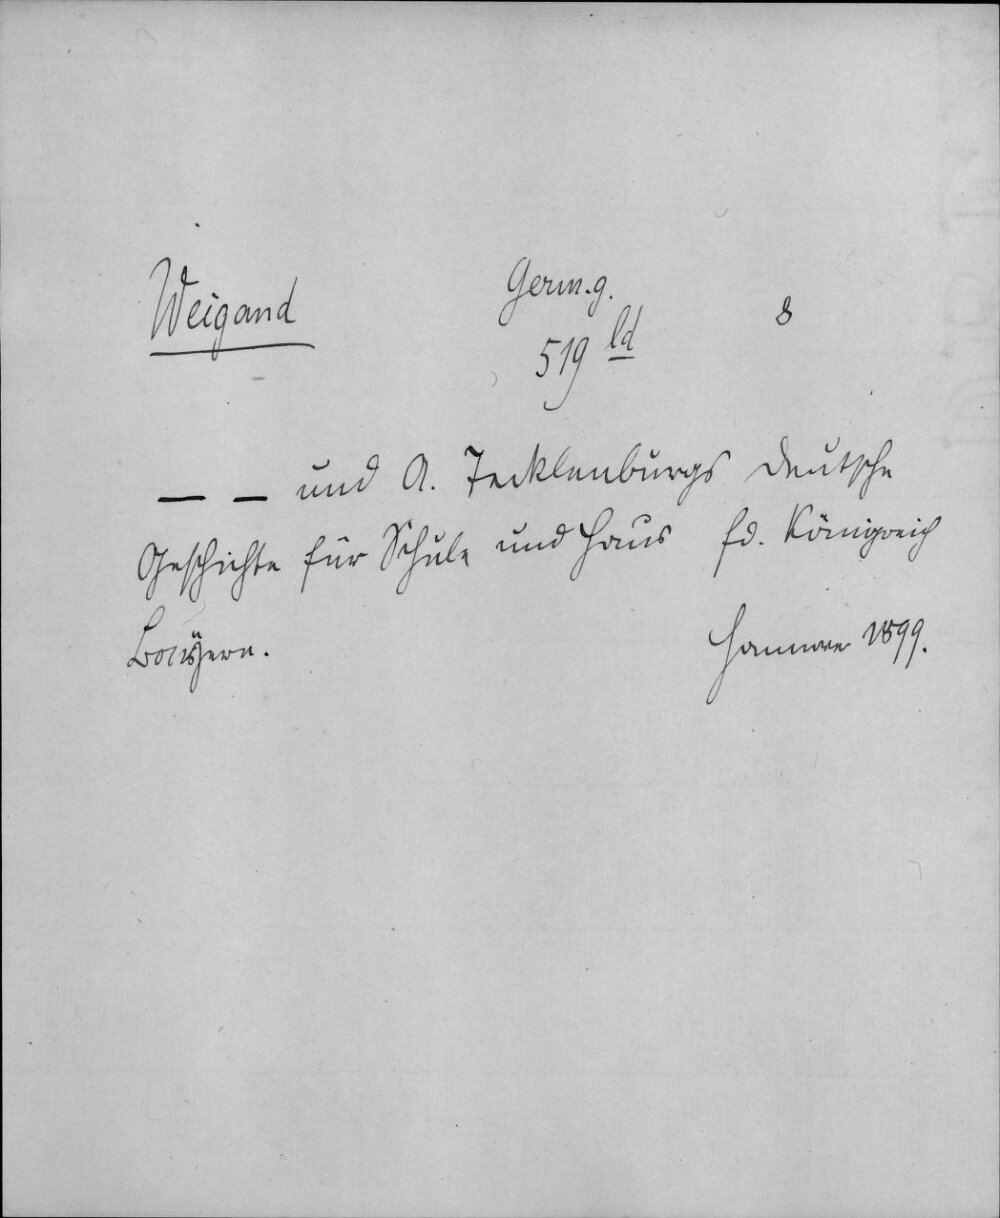 Weigand Germ. g. 8
519 ld
— — und A. Tecklenburgs Deutsche
Geschichte für Schule und Haus fd. Königreich
Bayern. Hannover 1899.